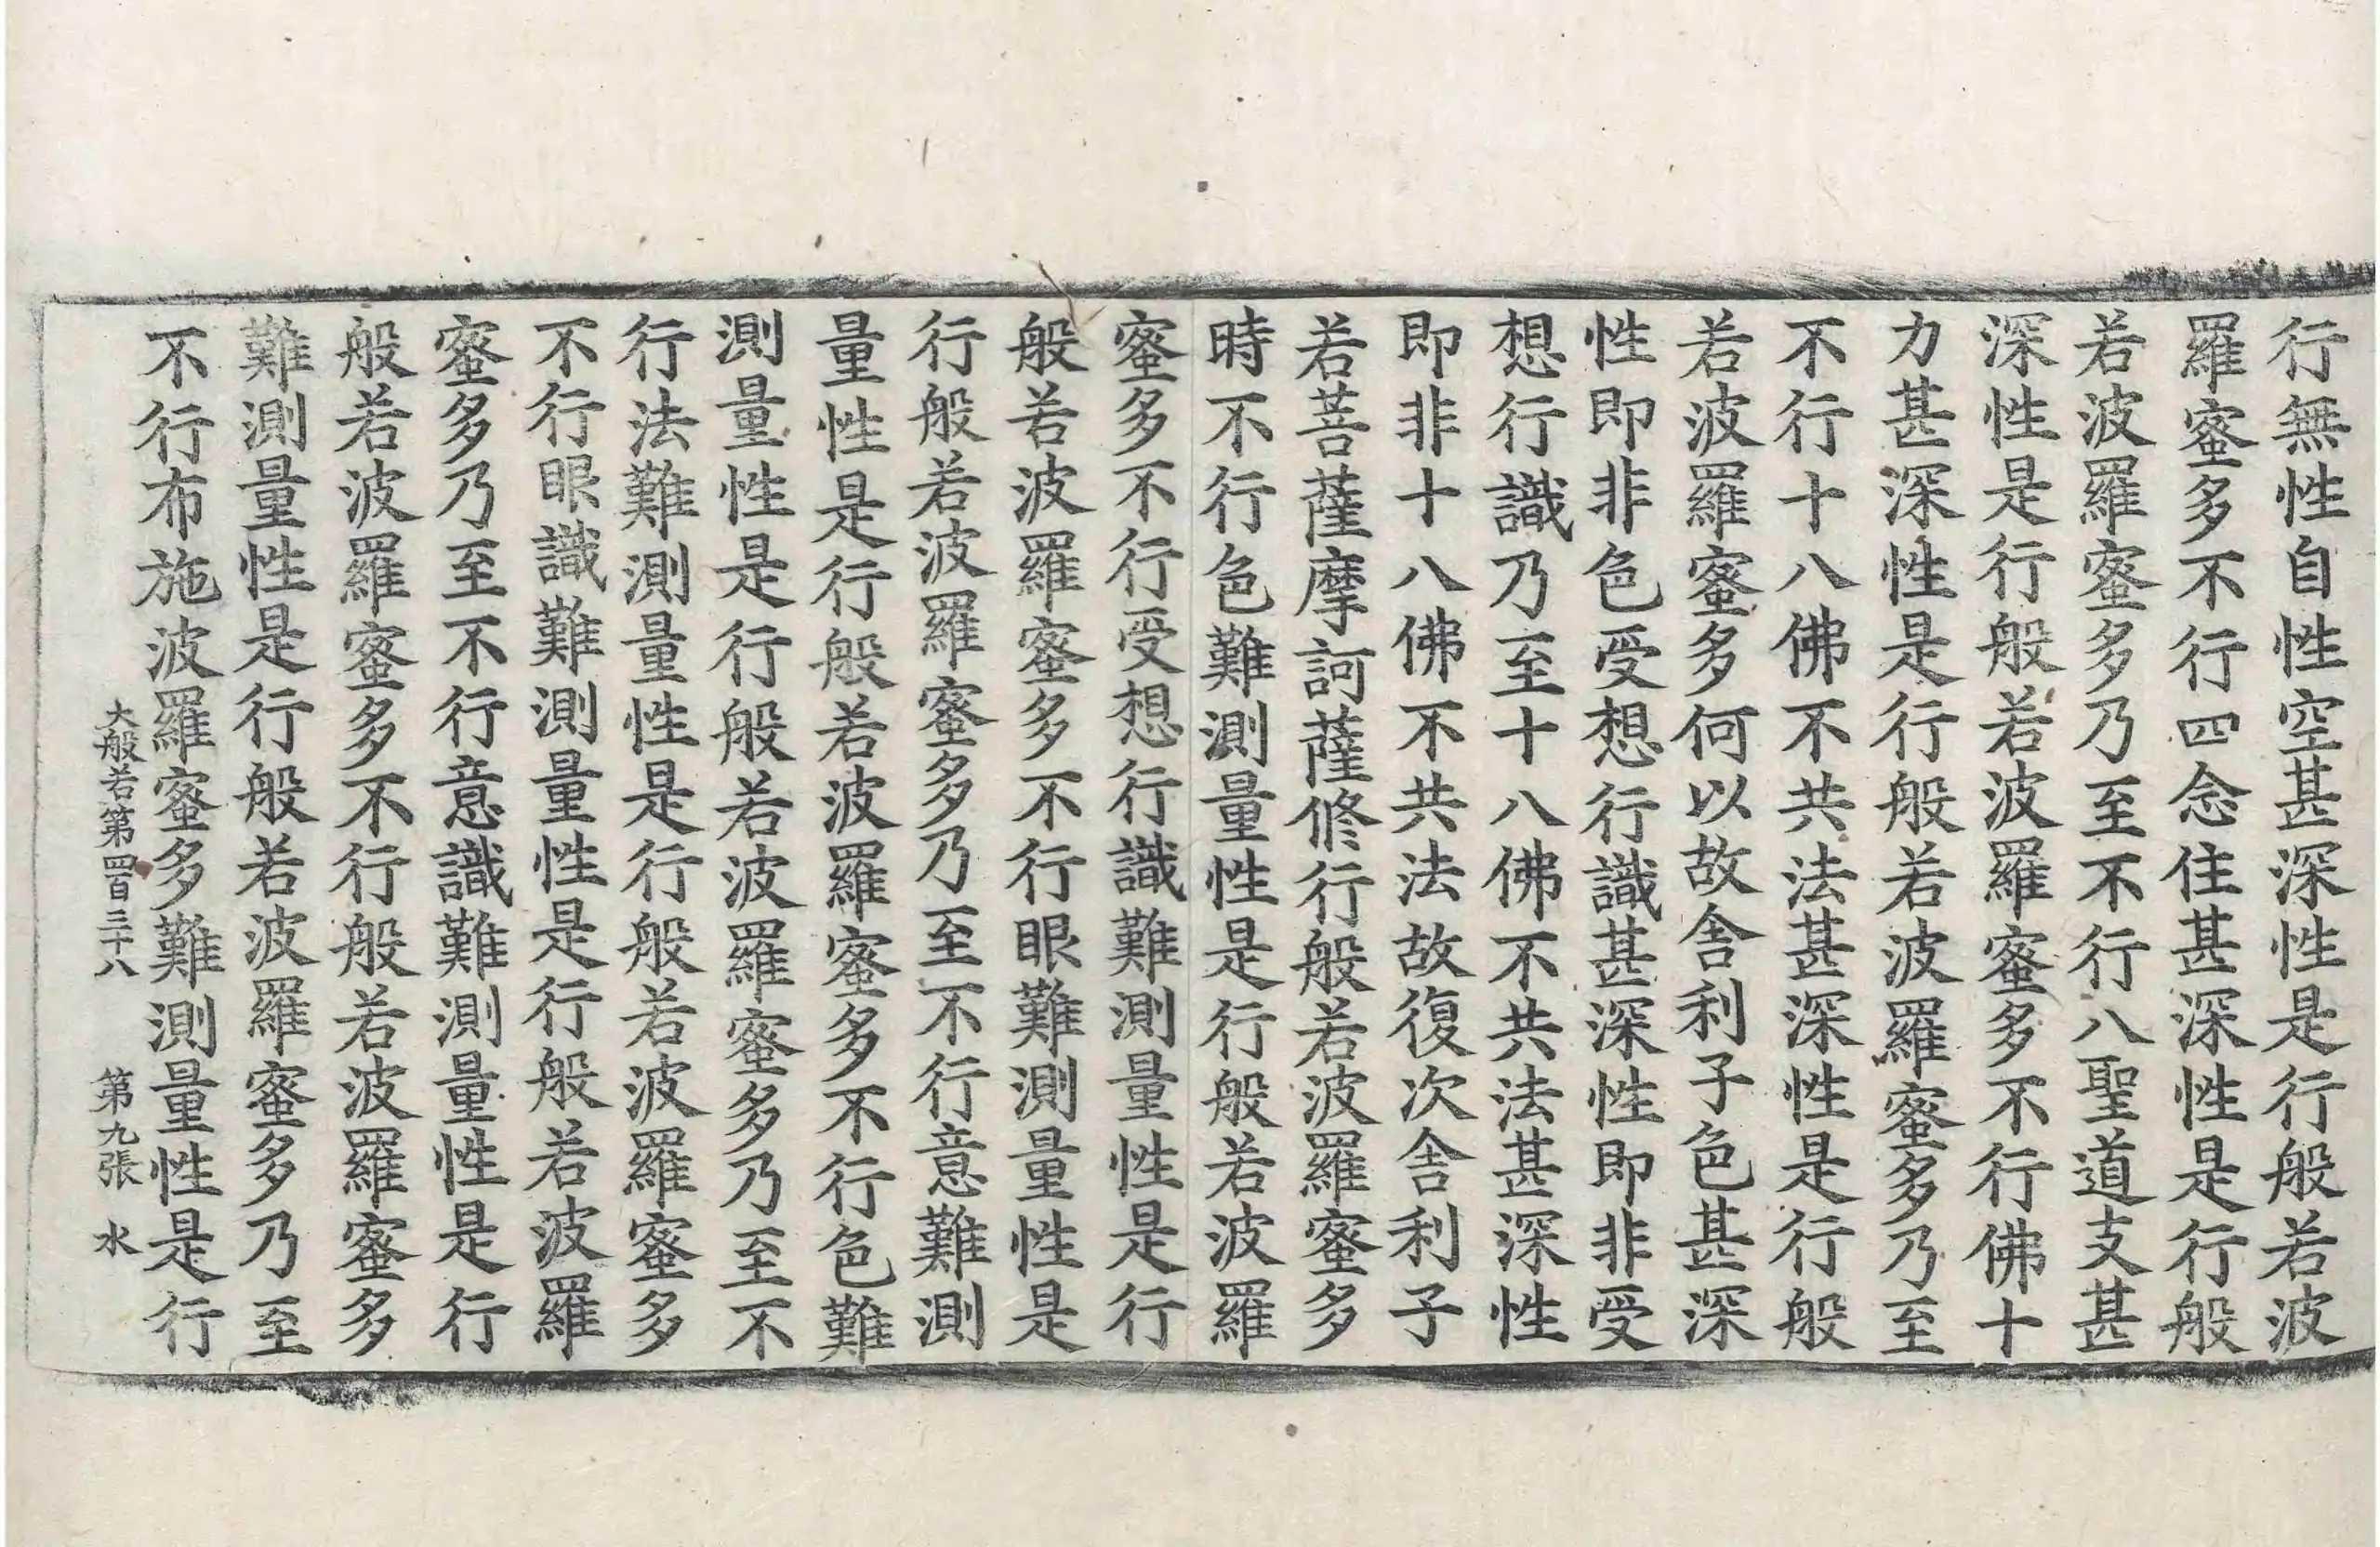 行無性自性空甚深性是行般若波
羅蜜多不行四念住甚深性是行般
若波羅蜜多乃至不行八聖道支甚
深性是行般若波羅蜜多不行佛十
力甚深性是行般若波羅蜜多乃至
不行十八佛不共法甚深性是行般
若波羅蜜多何以故舍利子色甚深
性即非色受想行識甚深性即非受
想行識乃至十八佛不共法甚深性
即非十八佛不共法故復次舍利子
若菩薩摩訶薩修行般若波羅蜜多
時不行色難測量性是行般若波羅
蜜多不行受想行識難測量性是行
般若波羅蜜多不行眼難測量性是
行般若波羅蜜多乃至不行意難測
量性是行般若波羅蜜多不行色難
測量性是行般若波羅蜜多乃至不
行法難測量性是行般若波羅蜜多
不行眼識難測量性是行般若波羅
蜜多乃至不行意識難測量性是行
般若波羅蜜多不行般若波羅蜜多
難測量性是行般若波羅蜜多乃至
不行布施波羅蜜多難測量性是行
大般若第四百三十八 第九張 水